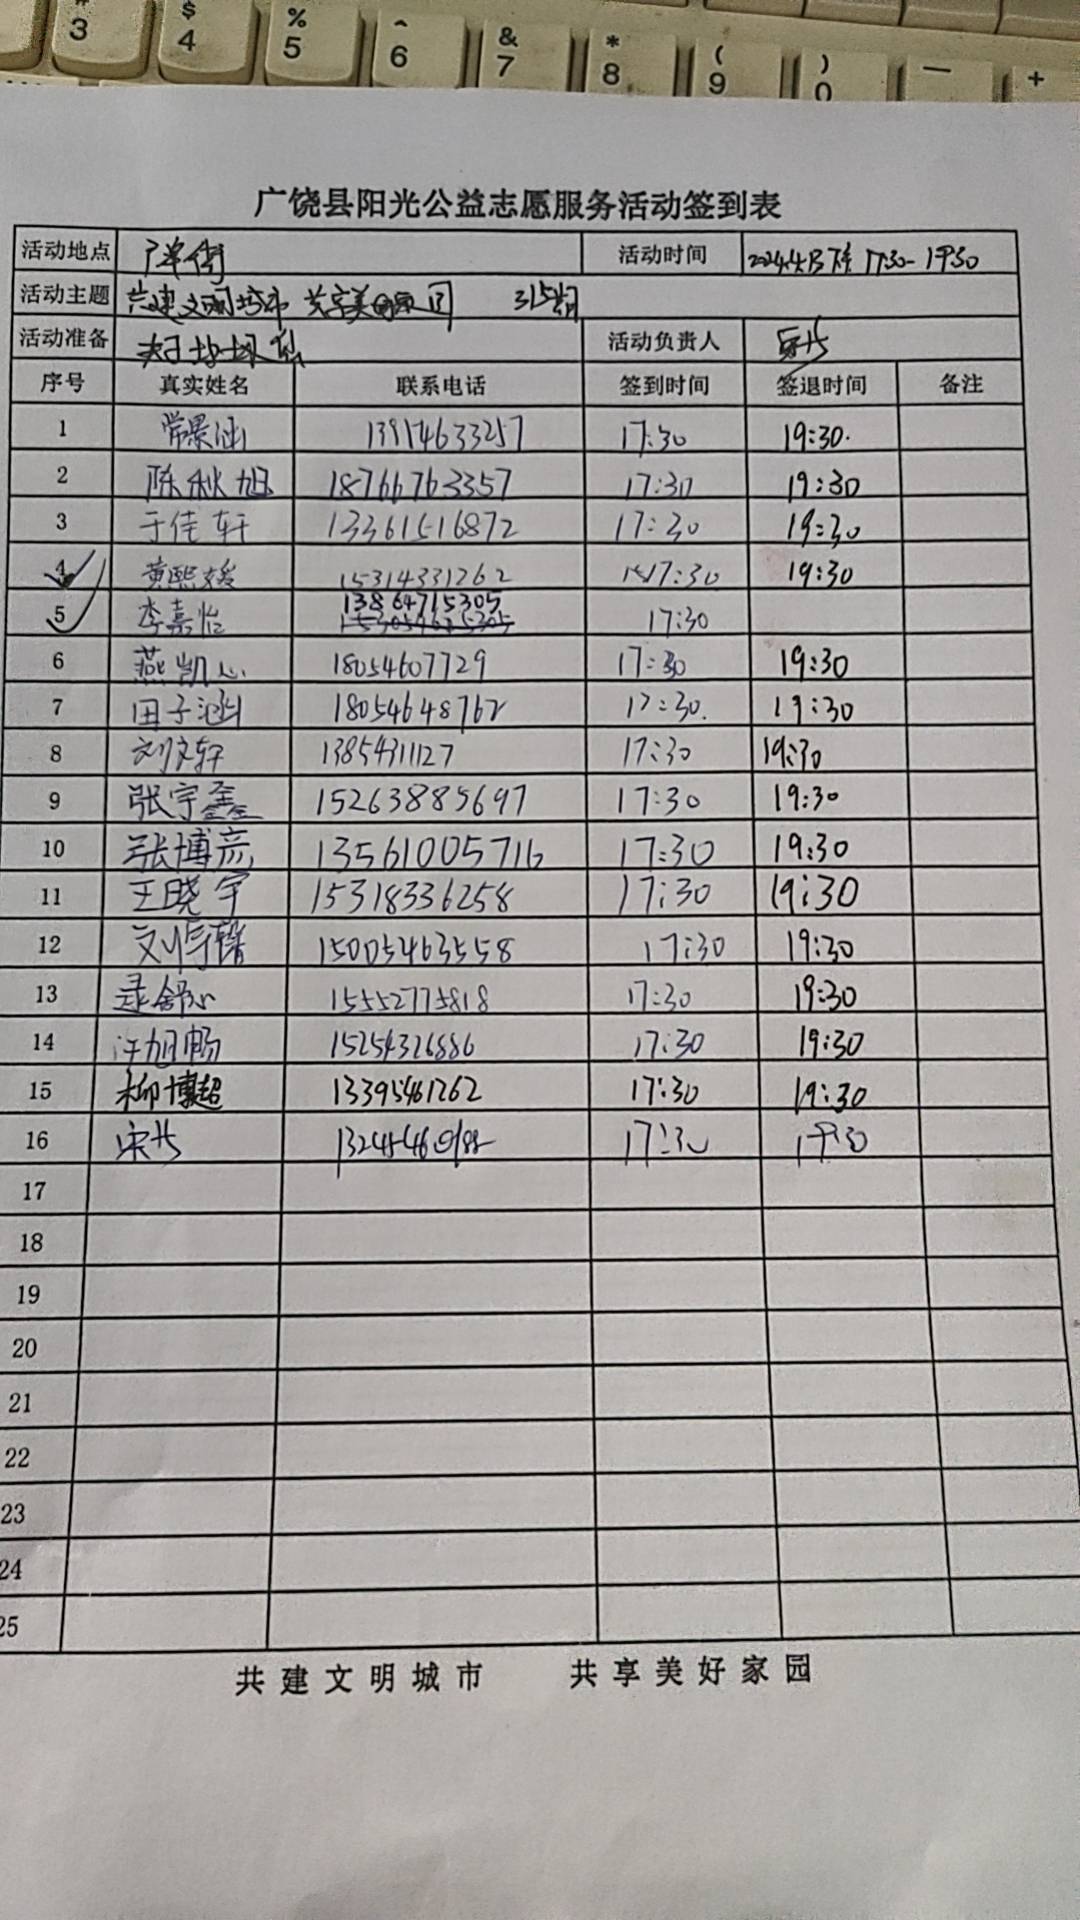 # 3
$ 4
% 5
^ 6
& 7
* 8
( 9
) 0
—
+
广饶县阳光公益志愿服务活动签到表
活动地点 活动时间 17:30-19:30
活动主题 共建文明城市 共享美好家园
活动准备 夹子 垃圾袋 活动负责人
序号 真实姓名 联系电话 签到时间 签退时间 备注
1 常景涵 13914633257 17:30 19:30.
2 陈秋旭 18766763357 17:30 19:30
3 于佳轩 13361516872 17:30 19:30
4 黄熙媛 15314331262 17:30 19:30
5 李嘉怡 13864715305 17:30
6 燕凯心 18054607729 17:30 19:30
7 田子涵 18054648762 17:30. 19:30
8 刘文轩 13854311127 17:30 19:30
9 张宇鑫 15263885697 17:30 19:30
10 张博彦 13561005716 17:30 19:30
11 王晓宇 15318336258 17:30 19:30
12 15005463558 17:30 19:30
13 15552775818 17:30 19:30
14 许旭畅 15254326886 17:30 19:30
15 柳博超 13395461262 17:30 19:30
16 17:30 19:30
17
18
19
20
21
22
23
24
25
共建文明城市 共享美好家园